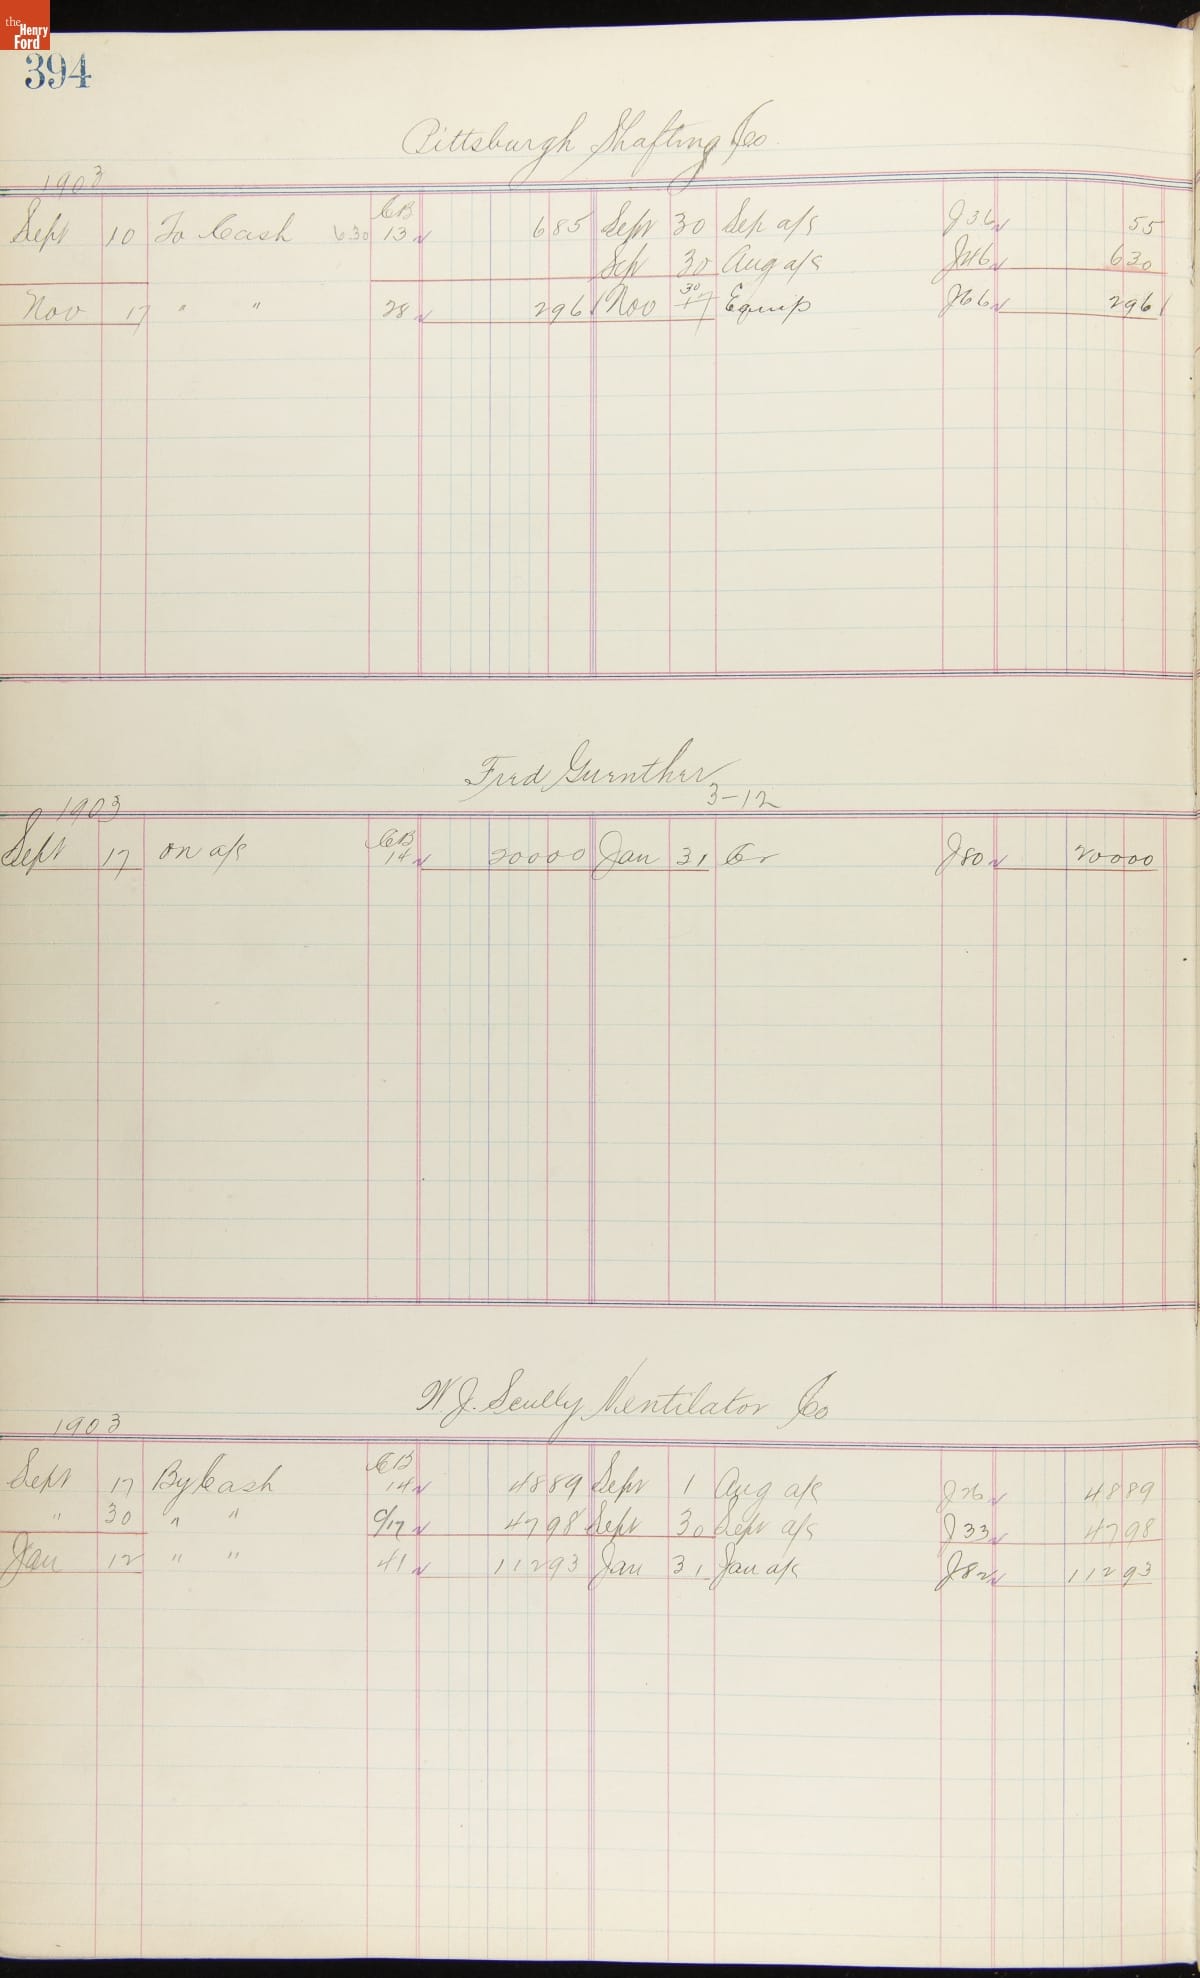 the Henry Ford
394
Pittsburgh Shafting Co
1903
CB
Sept 10 To Cash 630 13 685 Sept 30 Sep a/c J36 55
Sep 30 Aug a/c J46 630
Nov 17 " " 28 2961 Nov 30 17 Equip J66 2961
Fred Guenther
3-12
1903
CB
Sept 17 on a/c 14 20000 Jan 31 Cr J80 20000
W. J. Scully Ventilator Co
1903
CB
Sept 17 By Cash 14 4889 Sept 1 Aug a/c J26 4889
" 30 " " 17 4798 Sept 30 Sept a/c J33 4798
Jan 12 " " 41 11293 Jan 31 Jan a/c J82 11293